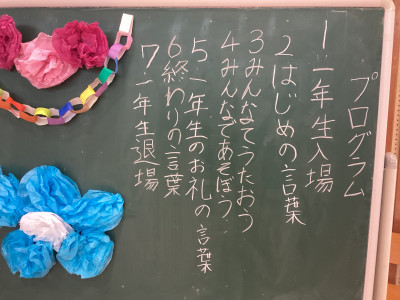 プログラム
1.一年生入場
2はじめの言葉
3みんなでうたおう
4みんなであそぼう
5.一年生のお礼の言葉
6終わりの言葉
7.一年生退場